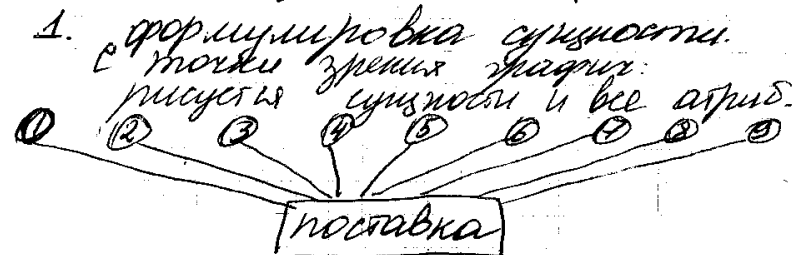 1. формулировка сущности.
с точки зрения график:
рисуется сущности и все атриб.
1 2 3 4 5 6 7 8 9
поставка